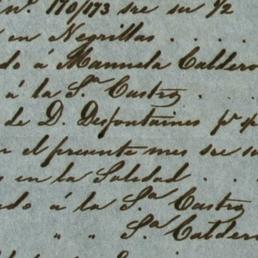 nº. 170/173 sre su 1/2
en Negrillas . . .
do á Manuela Caldero
á la Sª Castro .
de D. Desfontaines pº
n el presente mes sre su
s en la Soledad . . .
ado á la Sª Castro
" " Sª Caldero